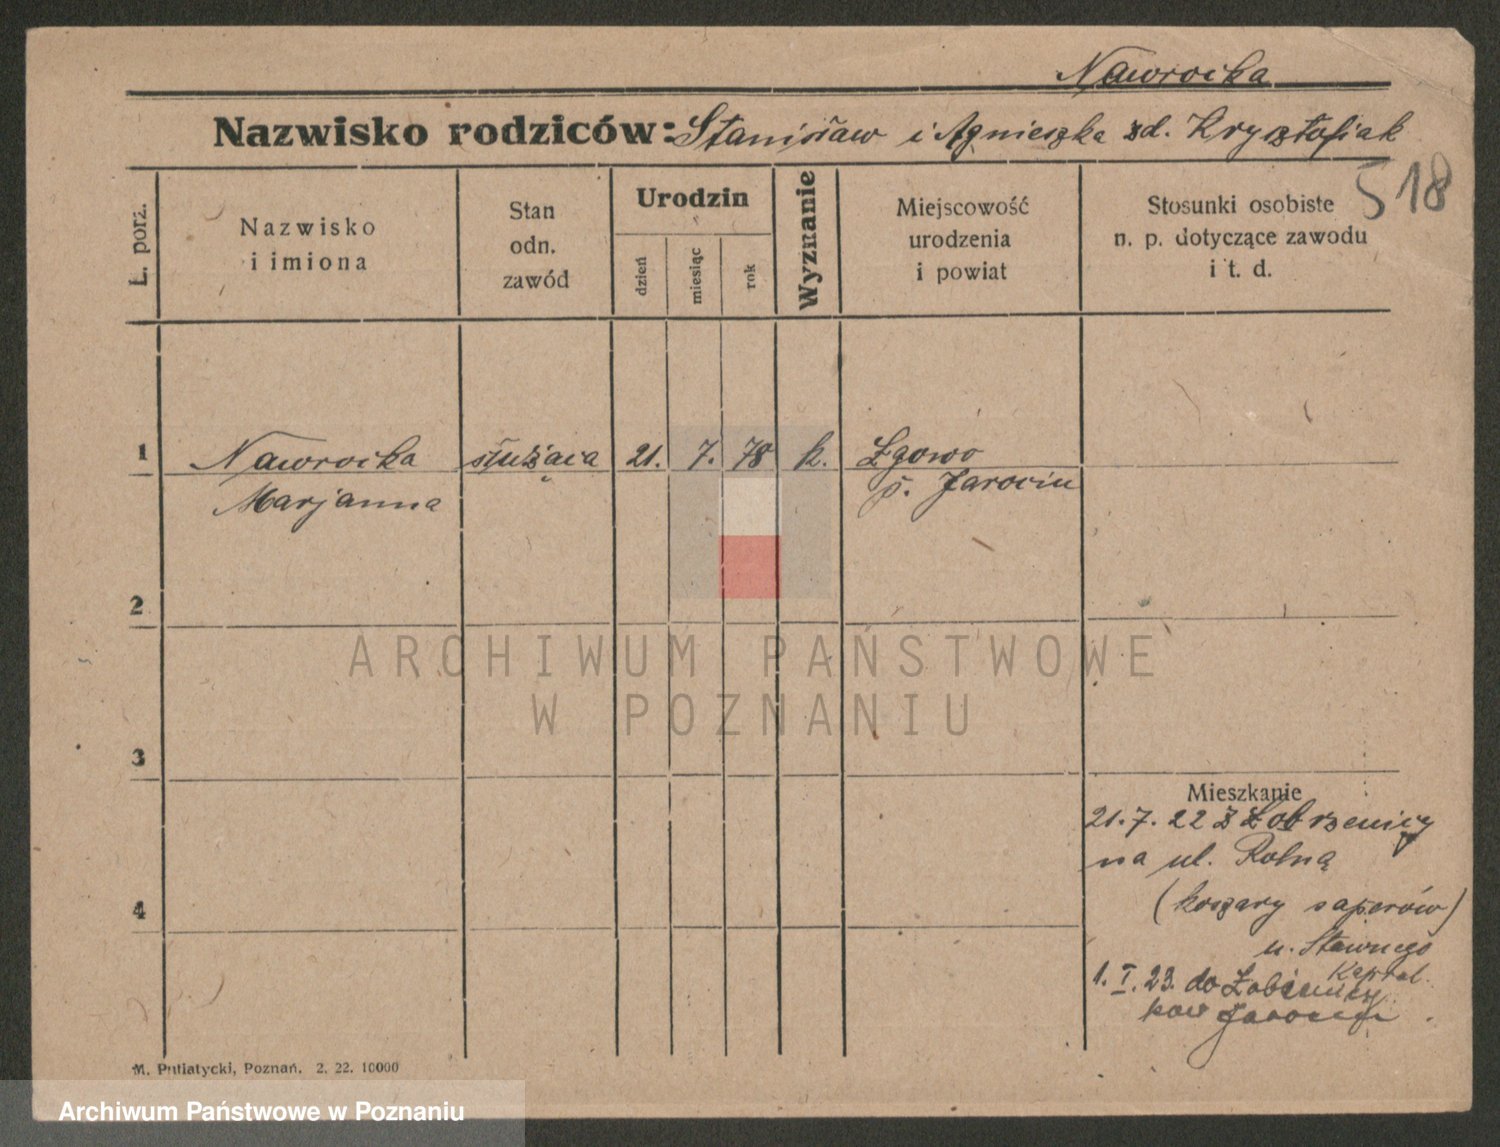 Nawrocka
Nazwisko rodziców: Stanisław i Agnieszka zd. Krysztofiak
518
L. porz.
Nazwisko
i imiona
Stan
odn.
zawód
Urodzin
dzień
miesiąc
rok
Wyznanie
Miejscowość
urodzenia
i powiat
Stosunki osobiste
n. p. dotyczące zawodu
i t. d.
1
Nawrocka służąca 21. 7. 78 k. Łgowo
Marjanna p. Jarocin
2
3
4
Mieszkanie
21. 7. 22 z
na ul. Rolną
(koszary saperów)
u. Stawnego
1. I. 23. do
pow
M. Putiatycki, Poznań. 2. 22. 10000
ARCHIWUM PAŃSTWOWE
W POZNANIU
Archiwum Państwowe w Poznaniu